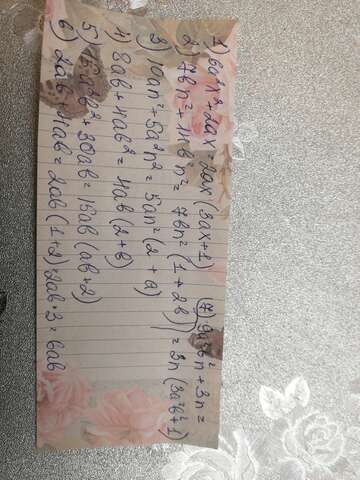 1) 6a²x²+2ax=2ax(3ax+1)
2) 7bn²+14b²n²=7bn²(1+2b)
3) 10an²+5a²n²=5an²(2+a)
4) 8ab+4ab²=4ab(2+b)
5) 15a²b²+30ab=15ab(ab+2)
6) 2ab+4ab=2ab(1+2)=2ab·3=6ab
7) 9a²b²n+3n=
=3n(3a²b²+1)